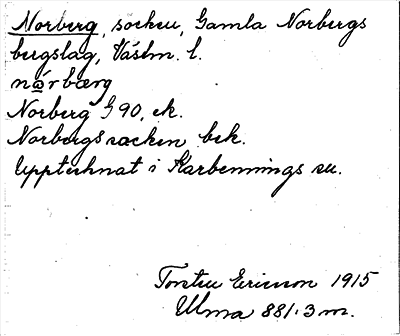 Norberg, socken, Gamla Norbergs
bergslag, Västm. l.
Norberg G 90, ek.
Norbergs socken bek.
Upptecknat i Karbennings sn.
Torsten Ericsson 1915
Ulma 881:3 m.